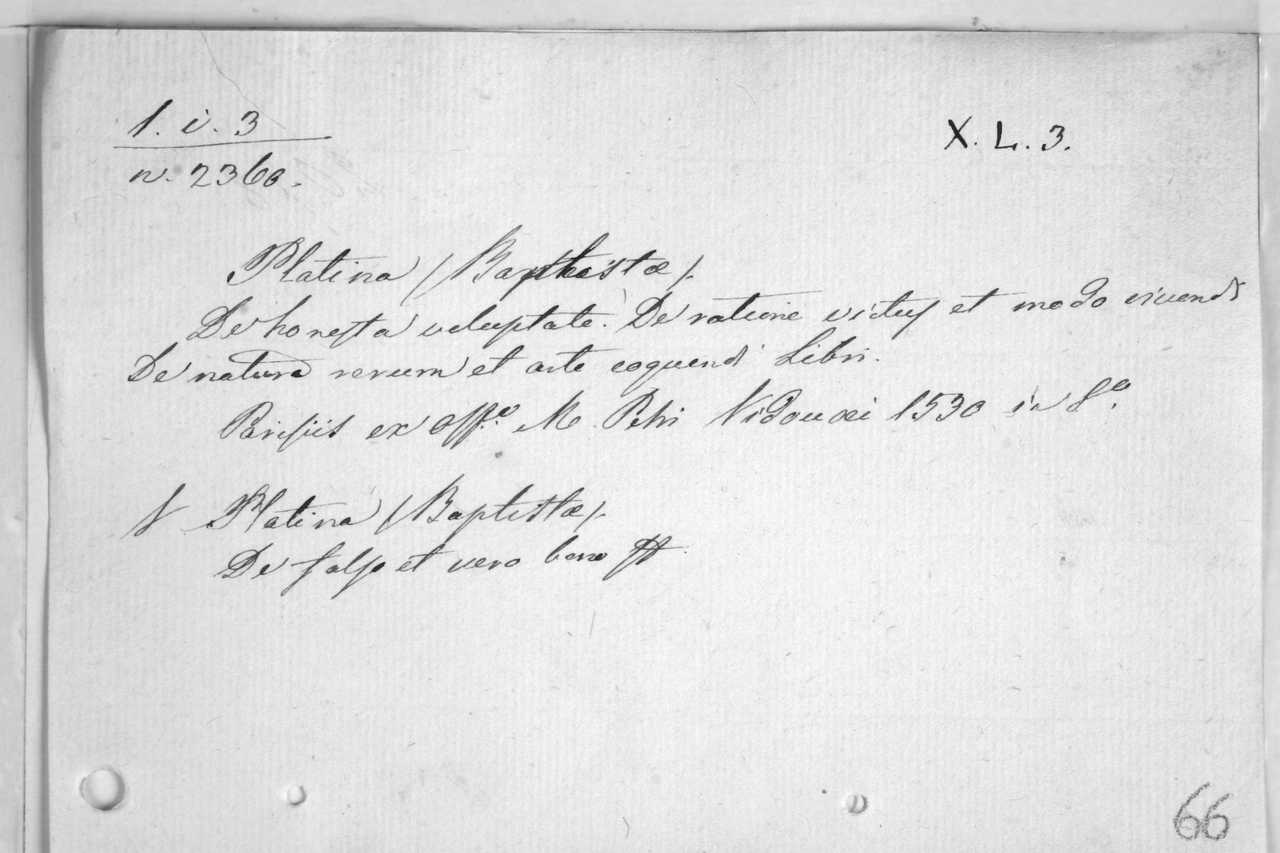 1. i. 3
n. 2360.
X. L. 3.
Platina (Baptista).
De honesta voluptate. De ratione victus et modo vivendi
De natura rerum et arte coquendi Libri.
Parisiis ex offo. M. Petri Vidouæi 1530 in 8o.
Platina (Baptista).
De falso et vero bono
66